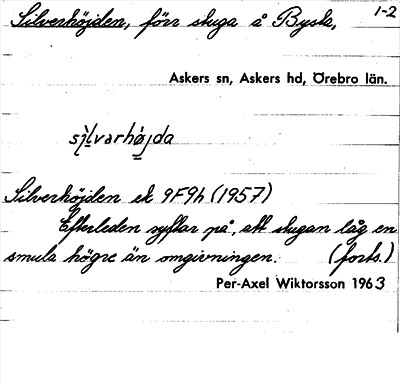 Silverhöjden, förr stuga å Bysta, 1-2
Askers sn, Askers hd, Örebro län.
sìlvarhø̀jda
Silverhöjden ek 9F9h (1957)
Efterleden syftar på, att stugan låg en
smula högre än omgivningen. (forts.)
Per-Axel Wiktorsson 1963